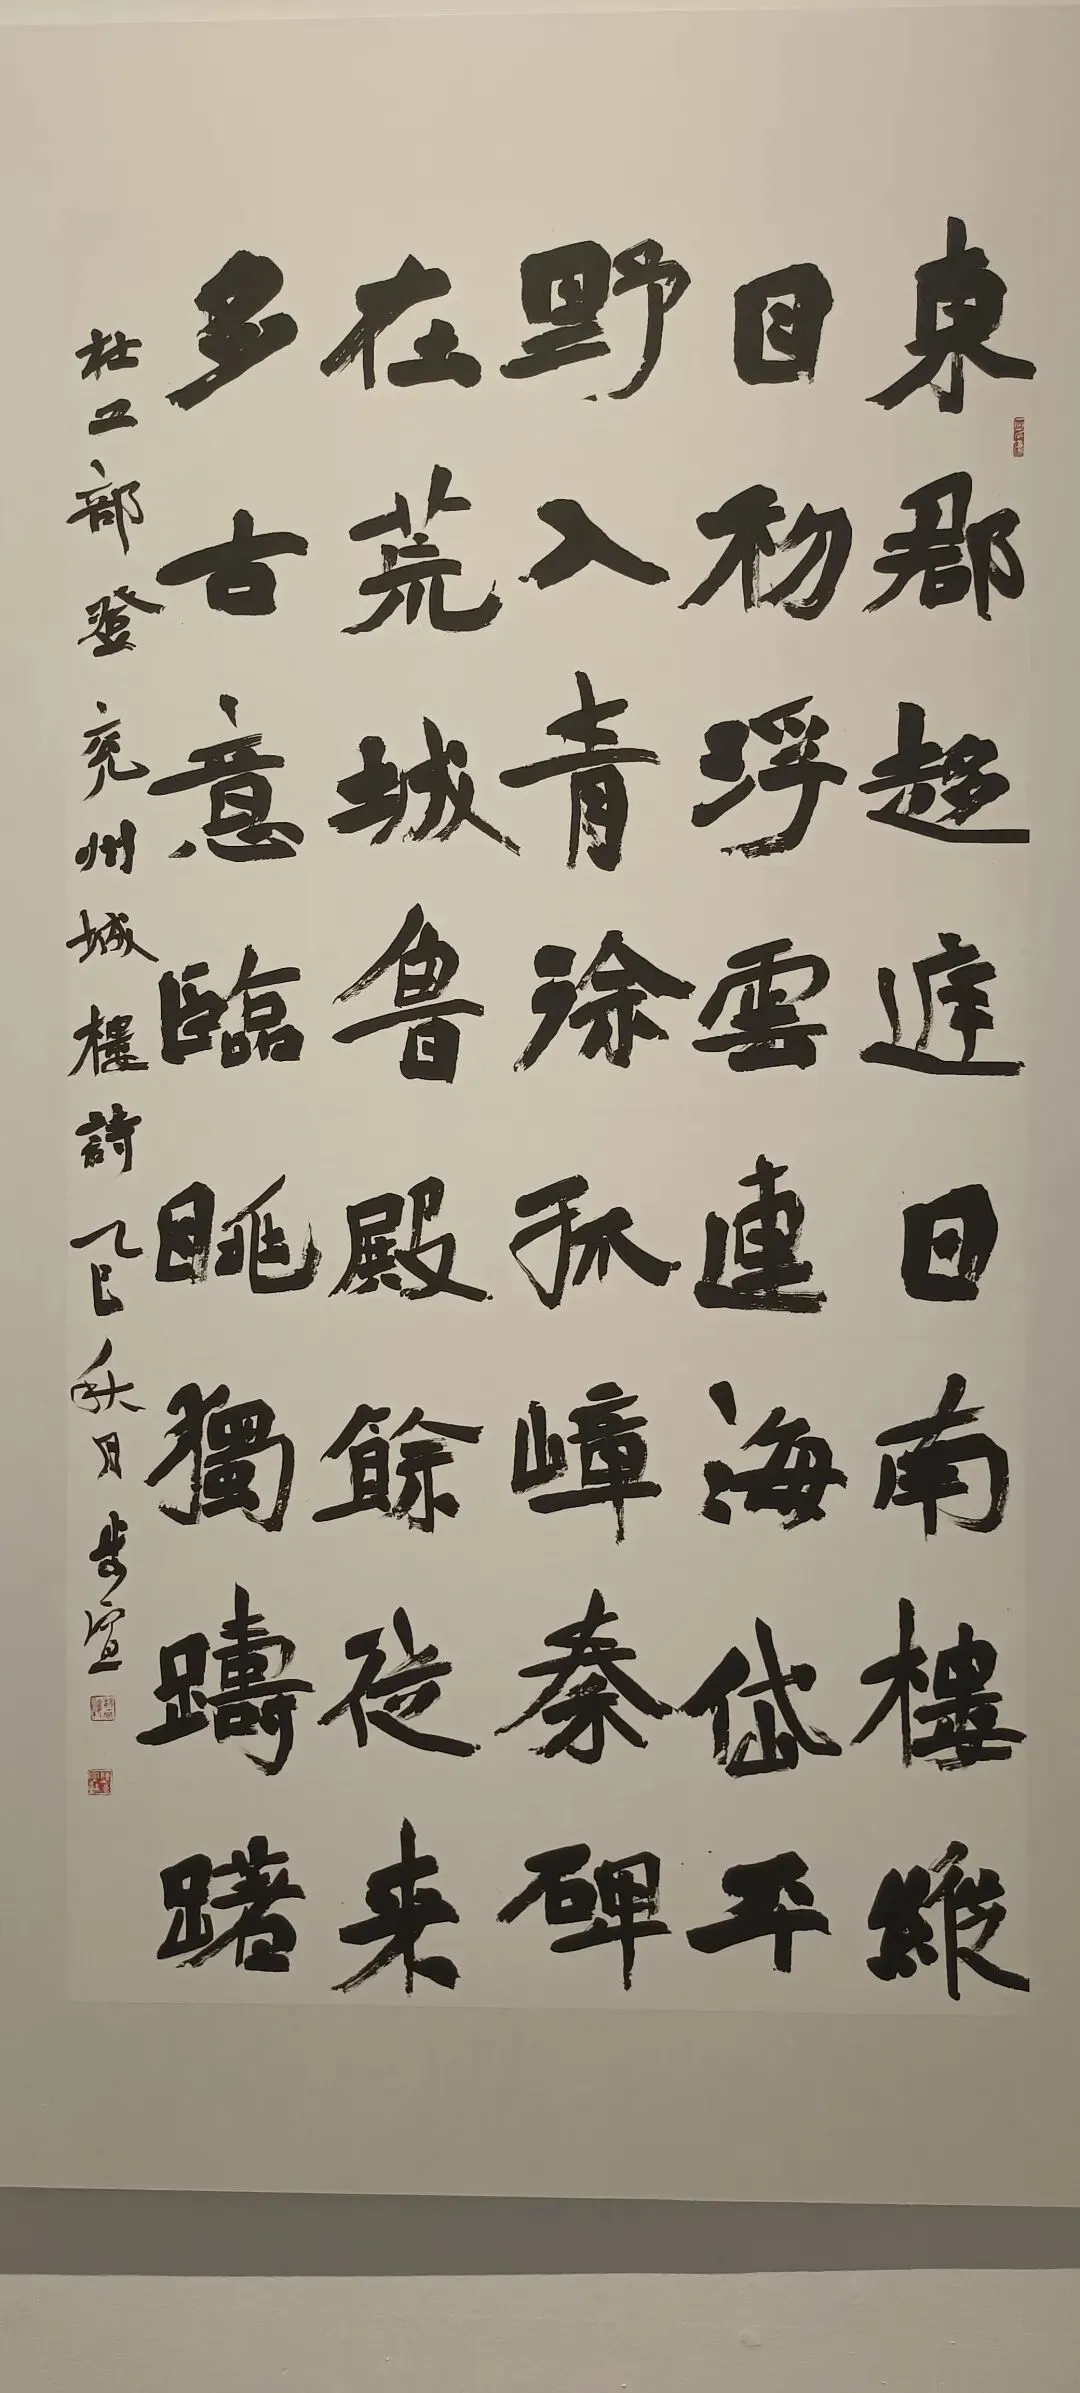 東郡趍庭日南樓縱
目初浮雲連海岱平
野入青徐孤嶂秦碑
在荒城魯殿餘從来
多古意臨眺獨躊躇
杜工部登兖州城樓詩乙巳秋月步宣